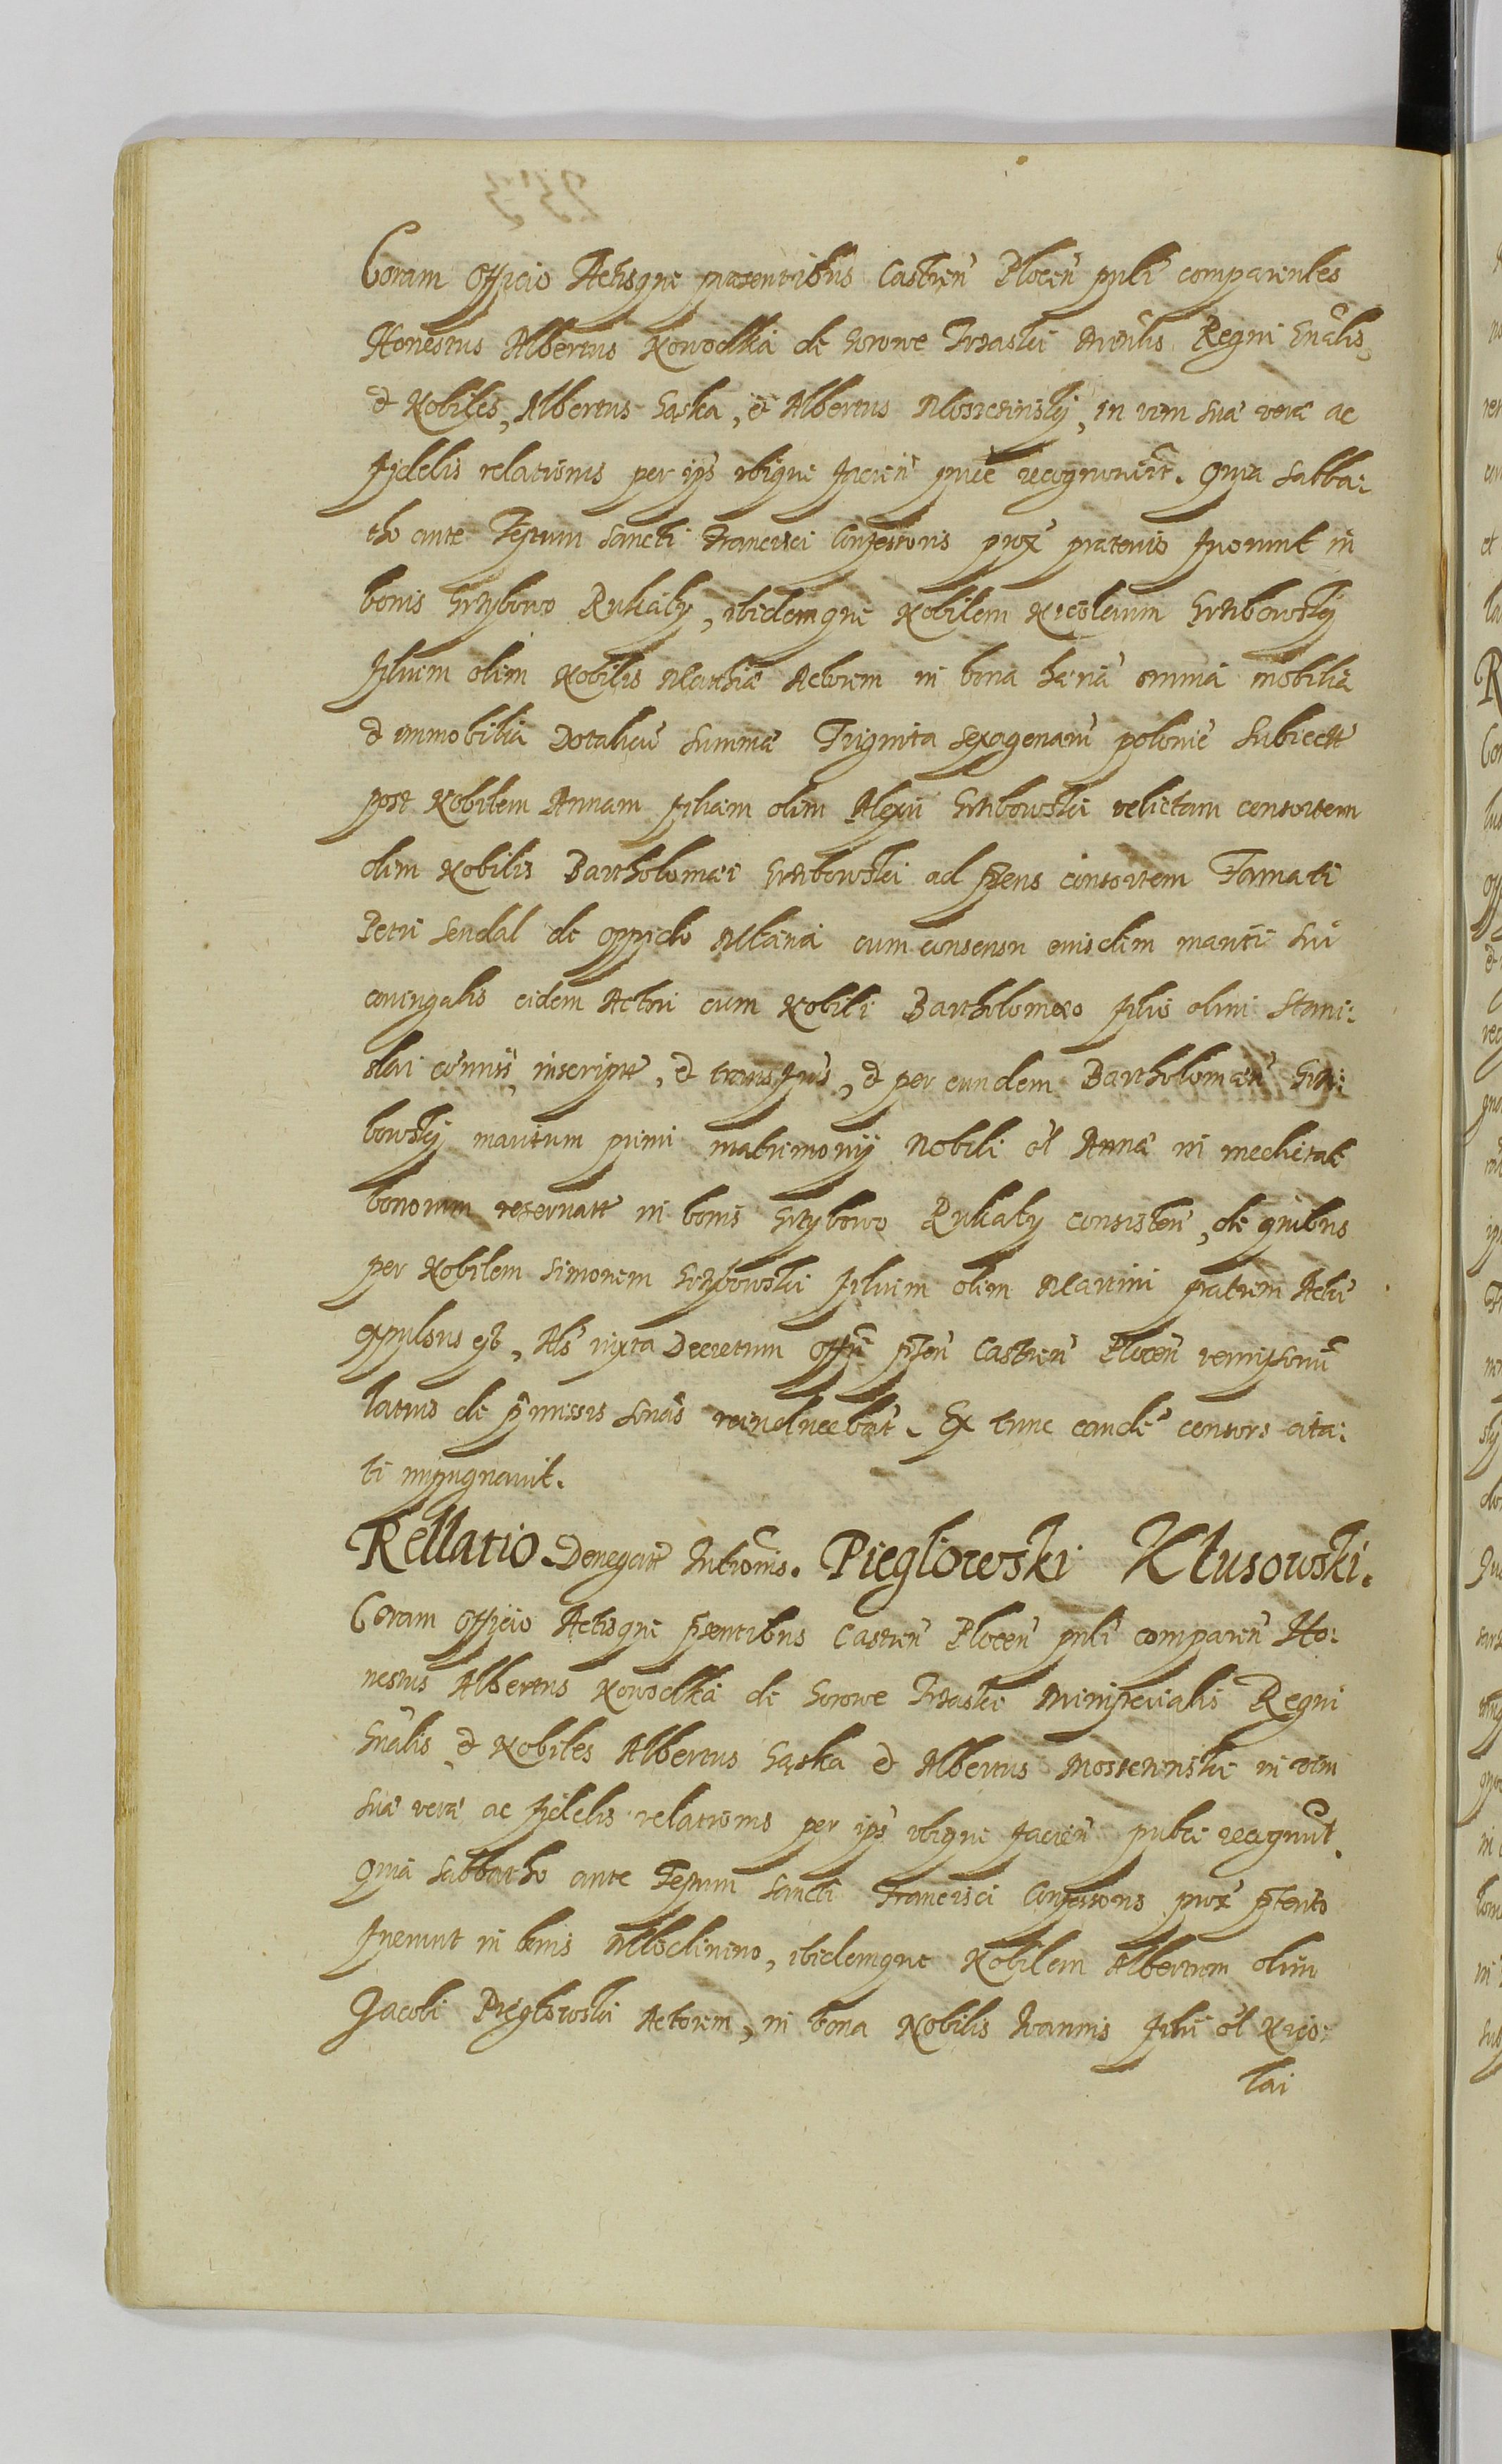 Coram Officio Actisque praesentibus Castren̄ Plocen̄ publ̄ comparentes
Honestus Albertus Nowodka de Gorowe Trzaski Mnrlis Regni Gnālis,
et Nobiles, Albertus Gąska, et Albertus, in vim suæ veræ ac
fidelis relationis per ips̄ ibique facien̄ recognoverūt. Quia Sabba:
tho ante Festum Sancti Francisci Confessoris prox̄ præterito fuerunt in
bonis Grzybowo Rukaly, ibidemque Nobilem Nicolaum Grzibowskÿ
filium olim Nobilis Mathiæ Actorem in bona hæc omnia mobilia
et immobilia Dotalicii Summæ Triginta sexagenarū polonic̄ Subiectt
post Nobilem Annam filiam olim Alexii Grzibowski relictam consortem
olim Nobilis Bartholomæi Grzibowski ad p̄sens consortem Famati
Petri Sendal de oppido Mlawa cum consensu eiusdem mariti sui
coniugalis eidem Actori cum Nobili Bartholomeo filio olim Stani:
slai inscriptt, et transfus̄, et per eundem Bartholomæū Grzi:
bowskÿ maritum primi matrimonÿ Nobili ol̄ Annæ in medietatt
bonorum reformatt in bonis Grzybowo Rukaly consisten̄, de quibus
per Nobilem Simonem Grzybowski filium olim Martini fratrem
expulsus est, Als̄ iuxta Decretum Offīī p̄sen̄ Castren̄ Plocen̄
latius de p̄missis sonās reinducebāt. Ex tunc eandē consors cita:
ti impugnavit.
Rellatio Denegatt Intrōnis. Pieglowski Klusowski.
Coram Officio Actisque p̄sentibus Castren̄ Plocen̄ publ̄ comparen̄ Ho:
nestus Albertus Nowodka de Gorowe Trzaski Ministerialis Regni
Gnālis, et Nobiles Albertus Gąska et Albertus in vim
suæ veræ ac fidelis relationis per ips̄ ibique facien̄ publce recognrūt.
Quia Sabbatho ante Festum Sancti Francisci Confessoris prox̄ p̄terito
fuerunt in bonis, ibidemque Nobilem Albertum olim
Jacobi Pieglowski Actorem, in bona Nobilis Ioannis filii ol̄ Nico:
lai